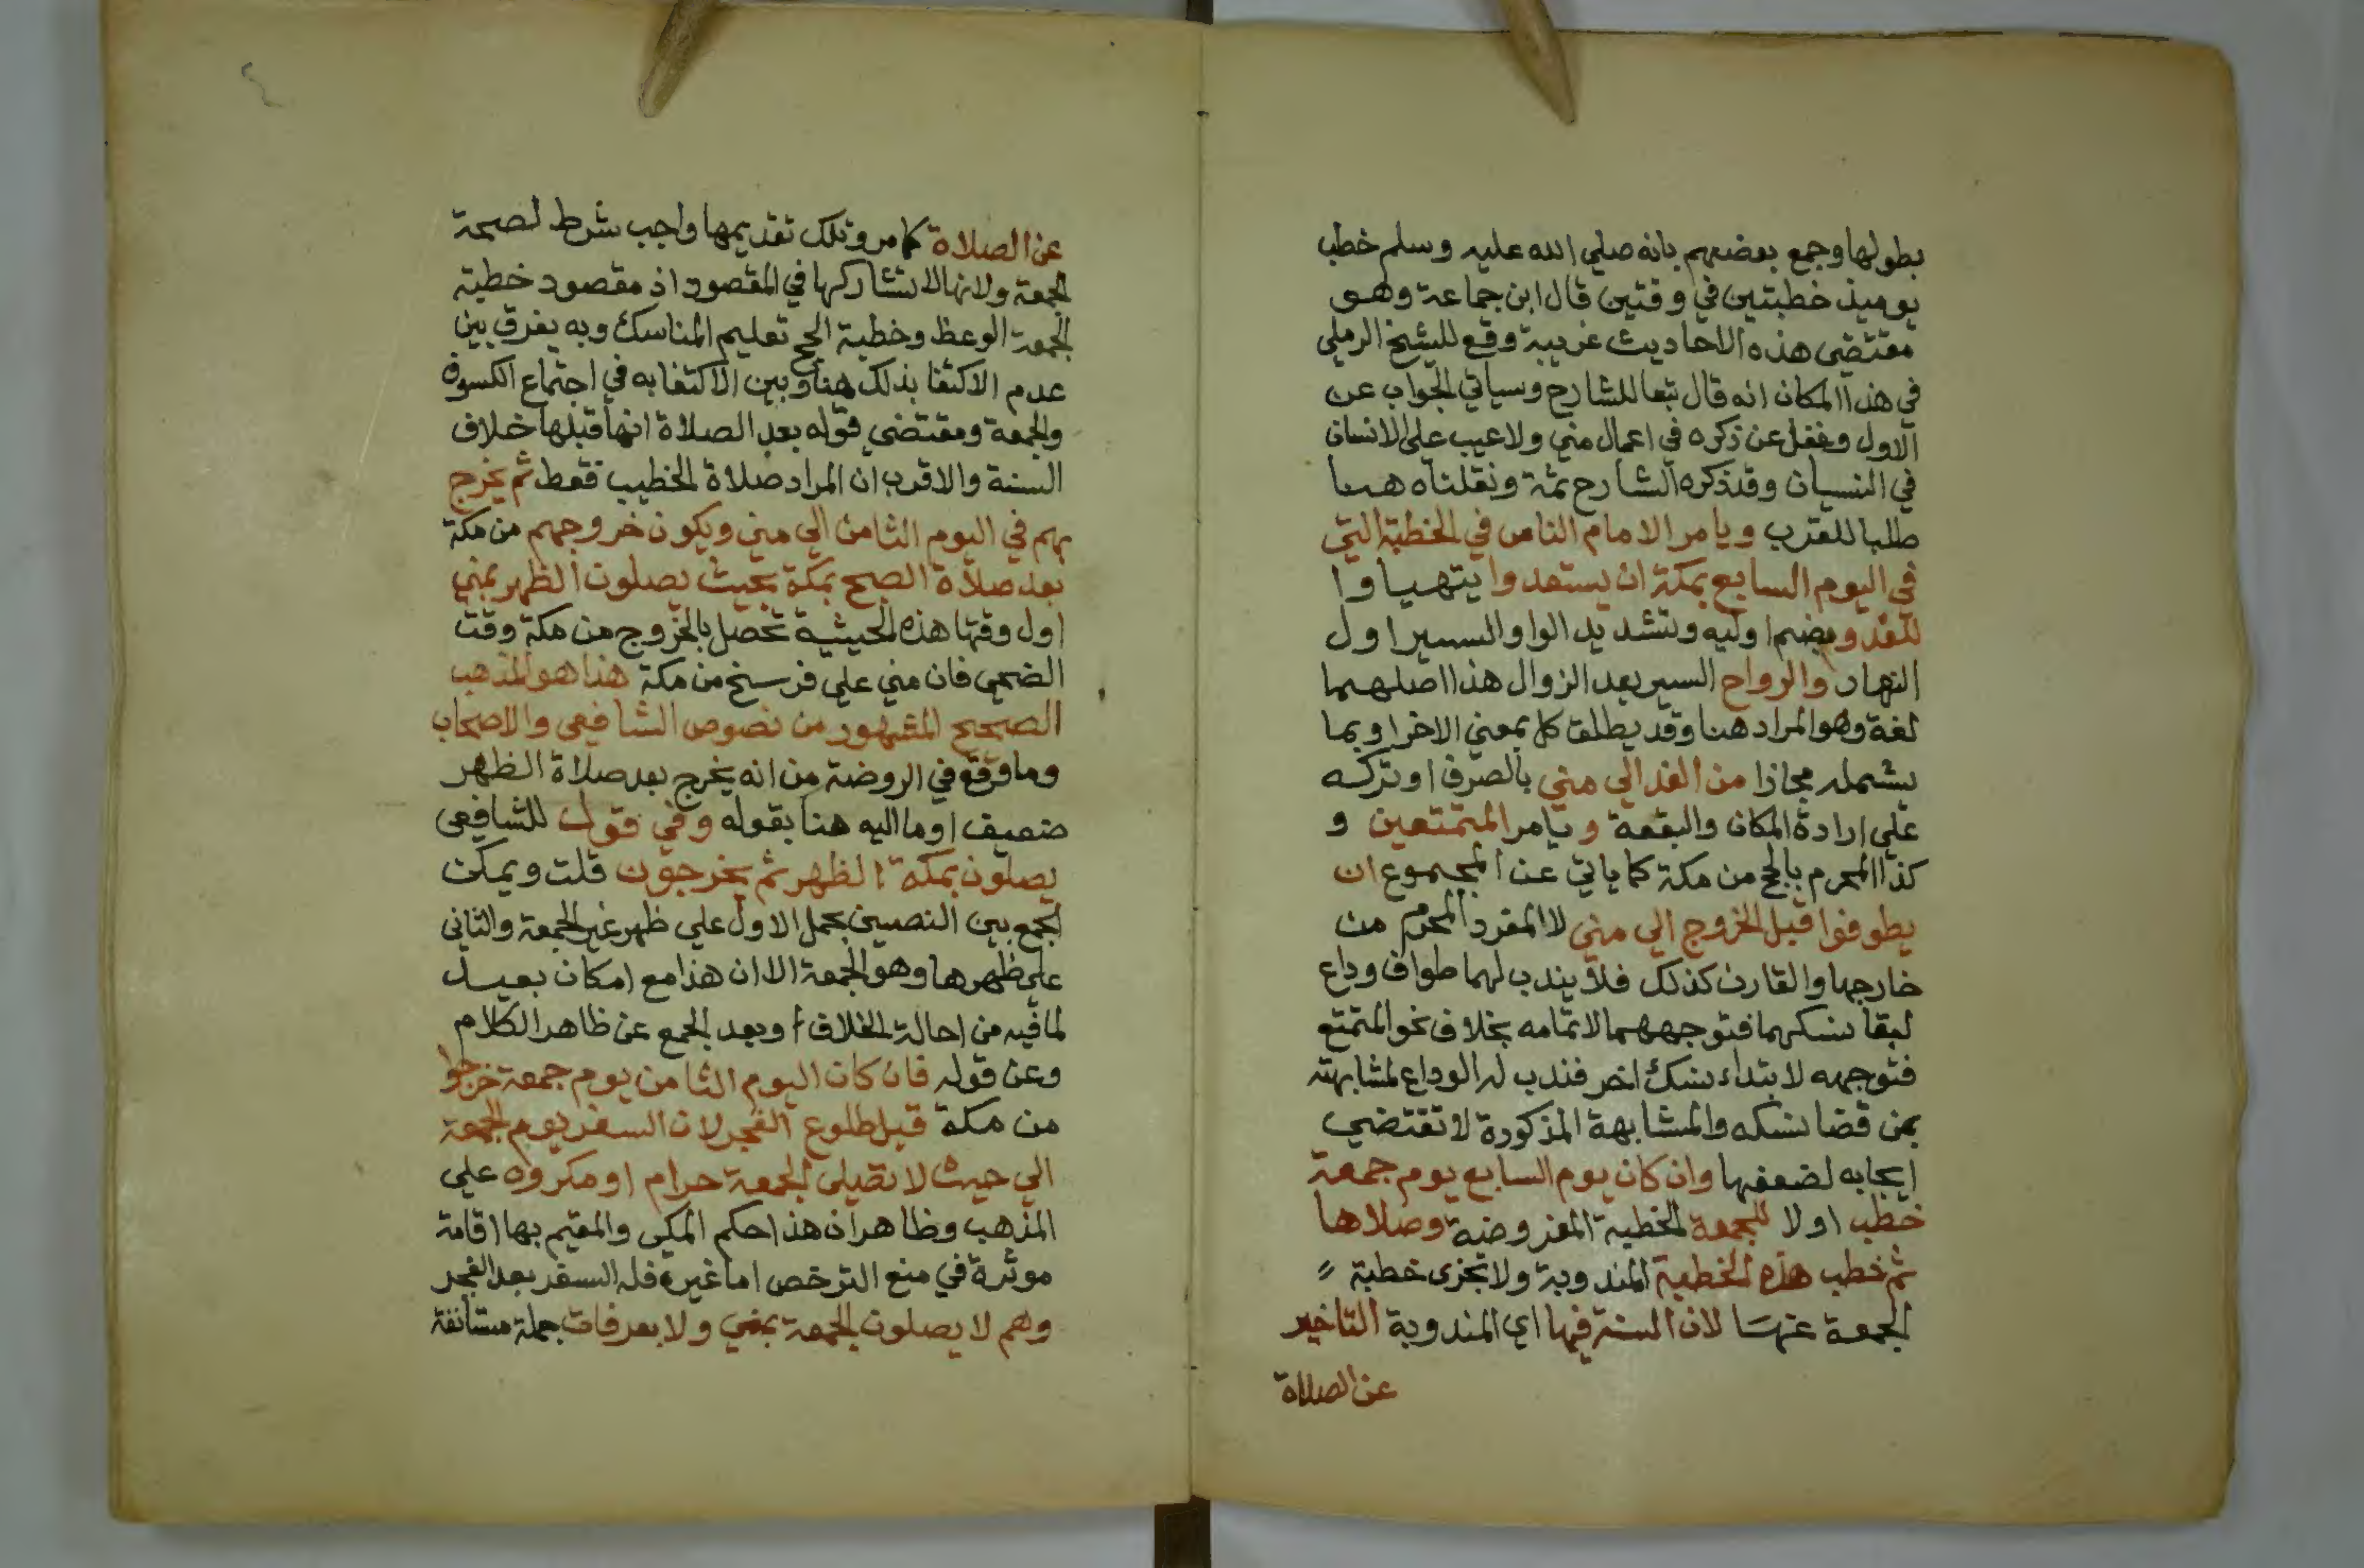 بطولها وجمع بعضهم بانه صلي الله عليه وسلم خطب
يوميذ خطبتين في وقتين قال ابن جماعة وهو
مقتضي هذه الاحاديث غريبة وقع للشيخ الرملي
في هذا المكان انه قال تبعا للشارح وسياتي الجواب عن
الاول وغفل عن ذكره في اعمال مني ولا عيب علي الانسان
في النسيان وقد ذكره الشارح ثمة ونقلناه هنا
طلبا للقرب ويامر الامام الناس في الخطبة التي
في اليوم السابع بمكة ان يستعدوا يتهياوا
للغدو بضم اوليه وتشديد الواو السير اول
النهار والرواح السير بعد الزوال هذا اصلهما
لغة وهو المراد هنا وقد يطلق كل بمعني الاخر او بما
يشمله مجازا من الغد الي مني بالصرف او تركه
علي ارادة المكان والبقعة ويامر المتمتعين و
كذا المحرم بالحج من مكة كما ياتي عن المجموع ان
يطوفوا قبل الخروج الي مني لا المفرد المحرم من
خارجها والقارن كذلك فلا يندب لهما طواف وداع
لبقا نسكهما فتوجههما لاتمامه بخلاف نحو المتمتع
فتوجهه لابتداء نسك اخر فندب له الوداع لمشابهته
بمن قضا نسكه والمشابهة المذكورة لا تقتضي
ايجابه لضعفها وان كان يوم السابع يوم جمعة
خطب اولا للجمعة الخطبة المفروضة وصلاها
ثم خطب هذه الخطبة المندوبة ولا تجزي خطبة
الجمعة عنها لان السنة فيها اي المندوبة التاخير
عن الصلاة
عن الصلاة كما مر وتلك تقديمها واجب شرط لصحة
الجمعة ولانها لا تشاركها في المقصود اذ مقصود خطبة
الجمعة الوعظ وخطبة الحج تعليم المناسك وبه يفرق بين
عدم الاكتفا بذلك هنا وبين الاكتفا به في اجتماع الكسوف
والجمعة ومقتضي قوله بعد الصلاة انها قبلها خلاف
السنة والاقرب ان المراد صلاة الخطيب فقط ثم يخرج
بهم في اليوم الثامن الي مني ويكون خروجهم من مكة
بعد صلاة الصبح بمكة بحيث يصلون الظهر بمني
اول وقتها هذه الحيثية تحصل بالخروج من مكة وقت
الضحي فان مني علي فرسخ من مكة هذا هو المذهب
الصحيح المشهور من نصوص الشافعي والاصحاب
وما وقع في الروضة من انه يخرج بعد صلاة الظهر
ضعيف اوما اليه هنا بقوله وفي قول للشافعي
يصلون بمكة الظهر ثم يخرجون قلت ويمكن
الجمع بين النصين بحمل الاول علي ظهر غير الجمعة والثاني
علي ظهرها وهو الجمعة الا ان هذا مع امكان بعيد
لما فيه من احالة الخلاف وبعد الجمع عن ظاهر الكلام
وعن قوله فان كان اليوم الثامن يوم جمعة خرجوا
من مكة قبل طلوع الفجر لان السفر يوم الجمعة
الي حيث لا تصلي الجمعة حرام او مكروه علي
المذهب وظاهر ان هذا حكم المكي والمقيم بها اقامة
موثرة في منع الترخص اما غيره فله السفر بعد الفجر
وهم لا يصلون الجمعة بمني ولا بعرفات جملة مستانفة